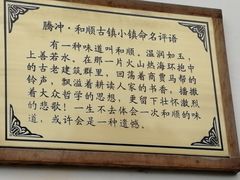 腾冲·和顺古镇小镇命名评语
有一种味道叫和顺。温润如玉，
上善若水。在那一片火山热海环抱中
的古老建筑群里，回荡着商贾马帮的
铃声，飘溢着耕读人家的书香，播撒
着大众哲学的思想，更留下壮怀激烈
的悲歌！一生不去体会一次和顺的味
道，或许会是一种遗憾。